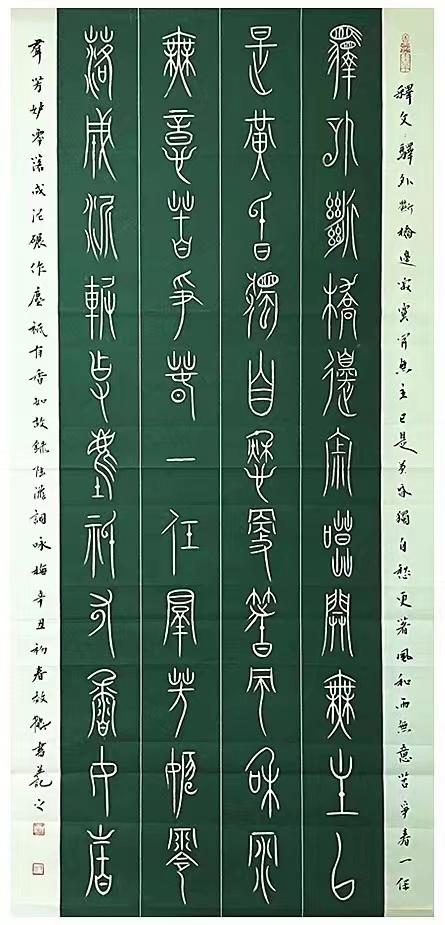 釋文驛外斷橋邊寂寞開無主已是黄昏獨自愁更著風和雨無意苦爭春一任
驛外斷橋邊寂寞開無主已
是黃昏獨自愁更著風和雨
無意苦爭春一任羣芳妒零
落成泥碾作塵祇有香如故
羣芳妒零落成泥碾作塵祇有香如故録陸游詞咏梅辛丑初春書記之